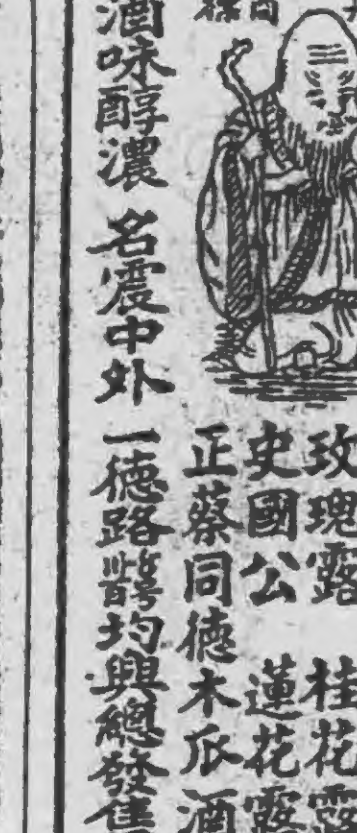 玫瑰露 桂花露
史國公 蓮花露
正蔡同德木瓜酒
酒味醇濃 名震中外 一德路謦均興總發售